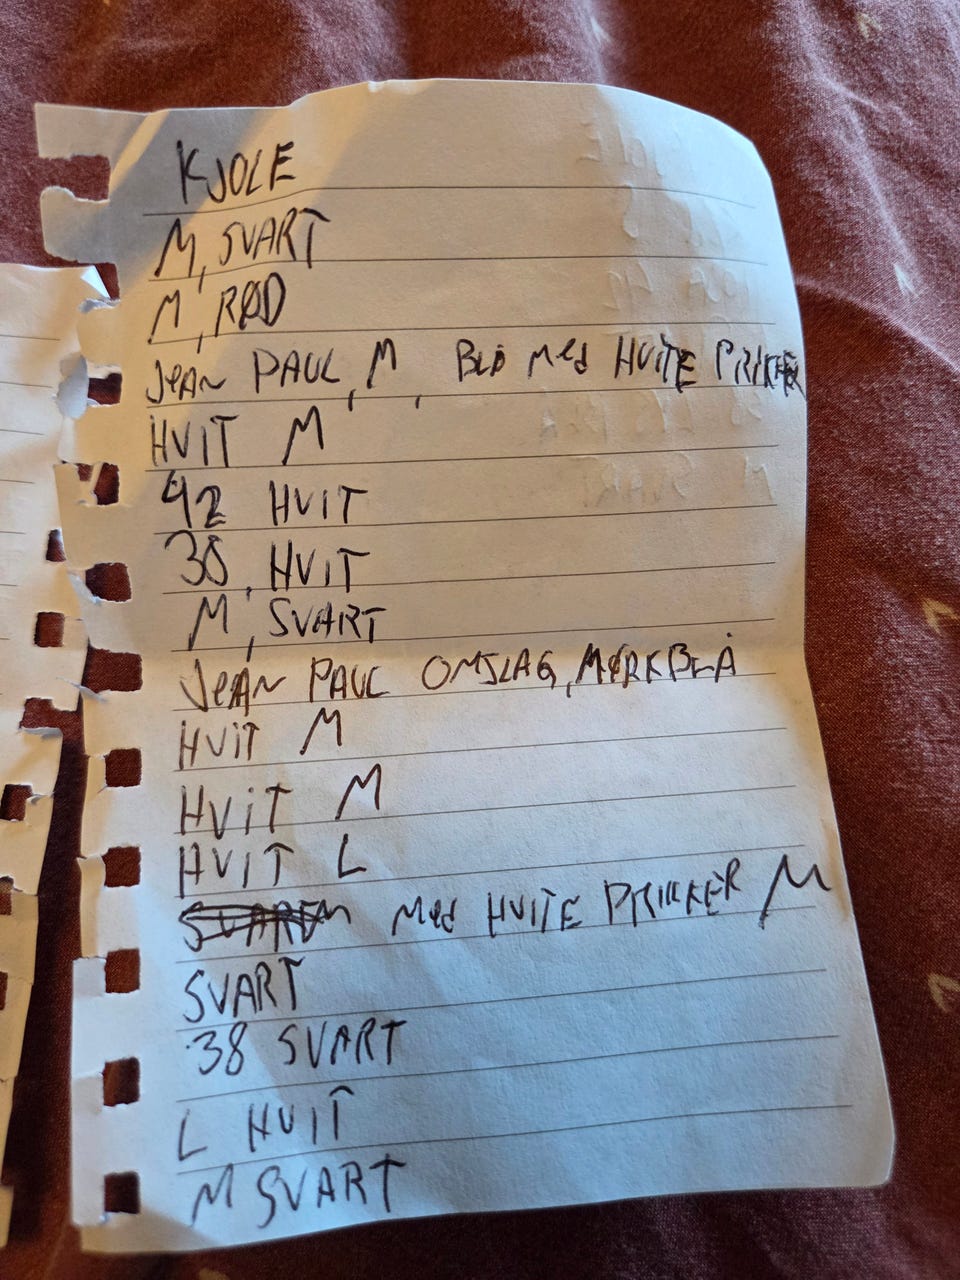 KJOLE
M, SVART
M, RØD
JeAN PAUL, M, BLÅ Med HVITE PRIKKER
HVIT M
42 HVIT
38, HVIT
M, SVART
JeAN PAUL OMSLAG, MØRKBLÅ
HViT M
HViT M
HVIT L
Med HVITE PRIKKER M
SVART
38 SVART
L HVIT
M SVART